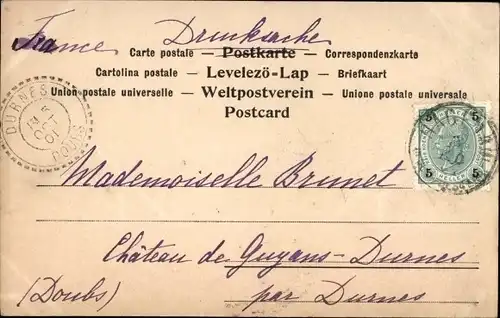 France Drucksache
Carte postale - Postkarte - Correspondenzkarte
Cartolina postale - Levelező-Lap - Briefkaart
Union postale universelle - Weltpostverein - Unione postale universale
Postcard
DURNES
6
OCT
01
DOUBS
5 5
5 5
HELLER
Mademoiselle Brunet
Château de Guyans-Durnes
(Doubs) par Durnes